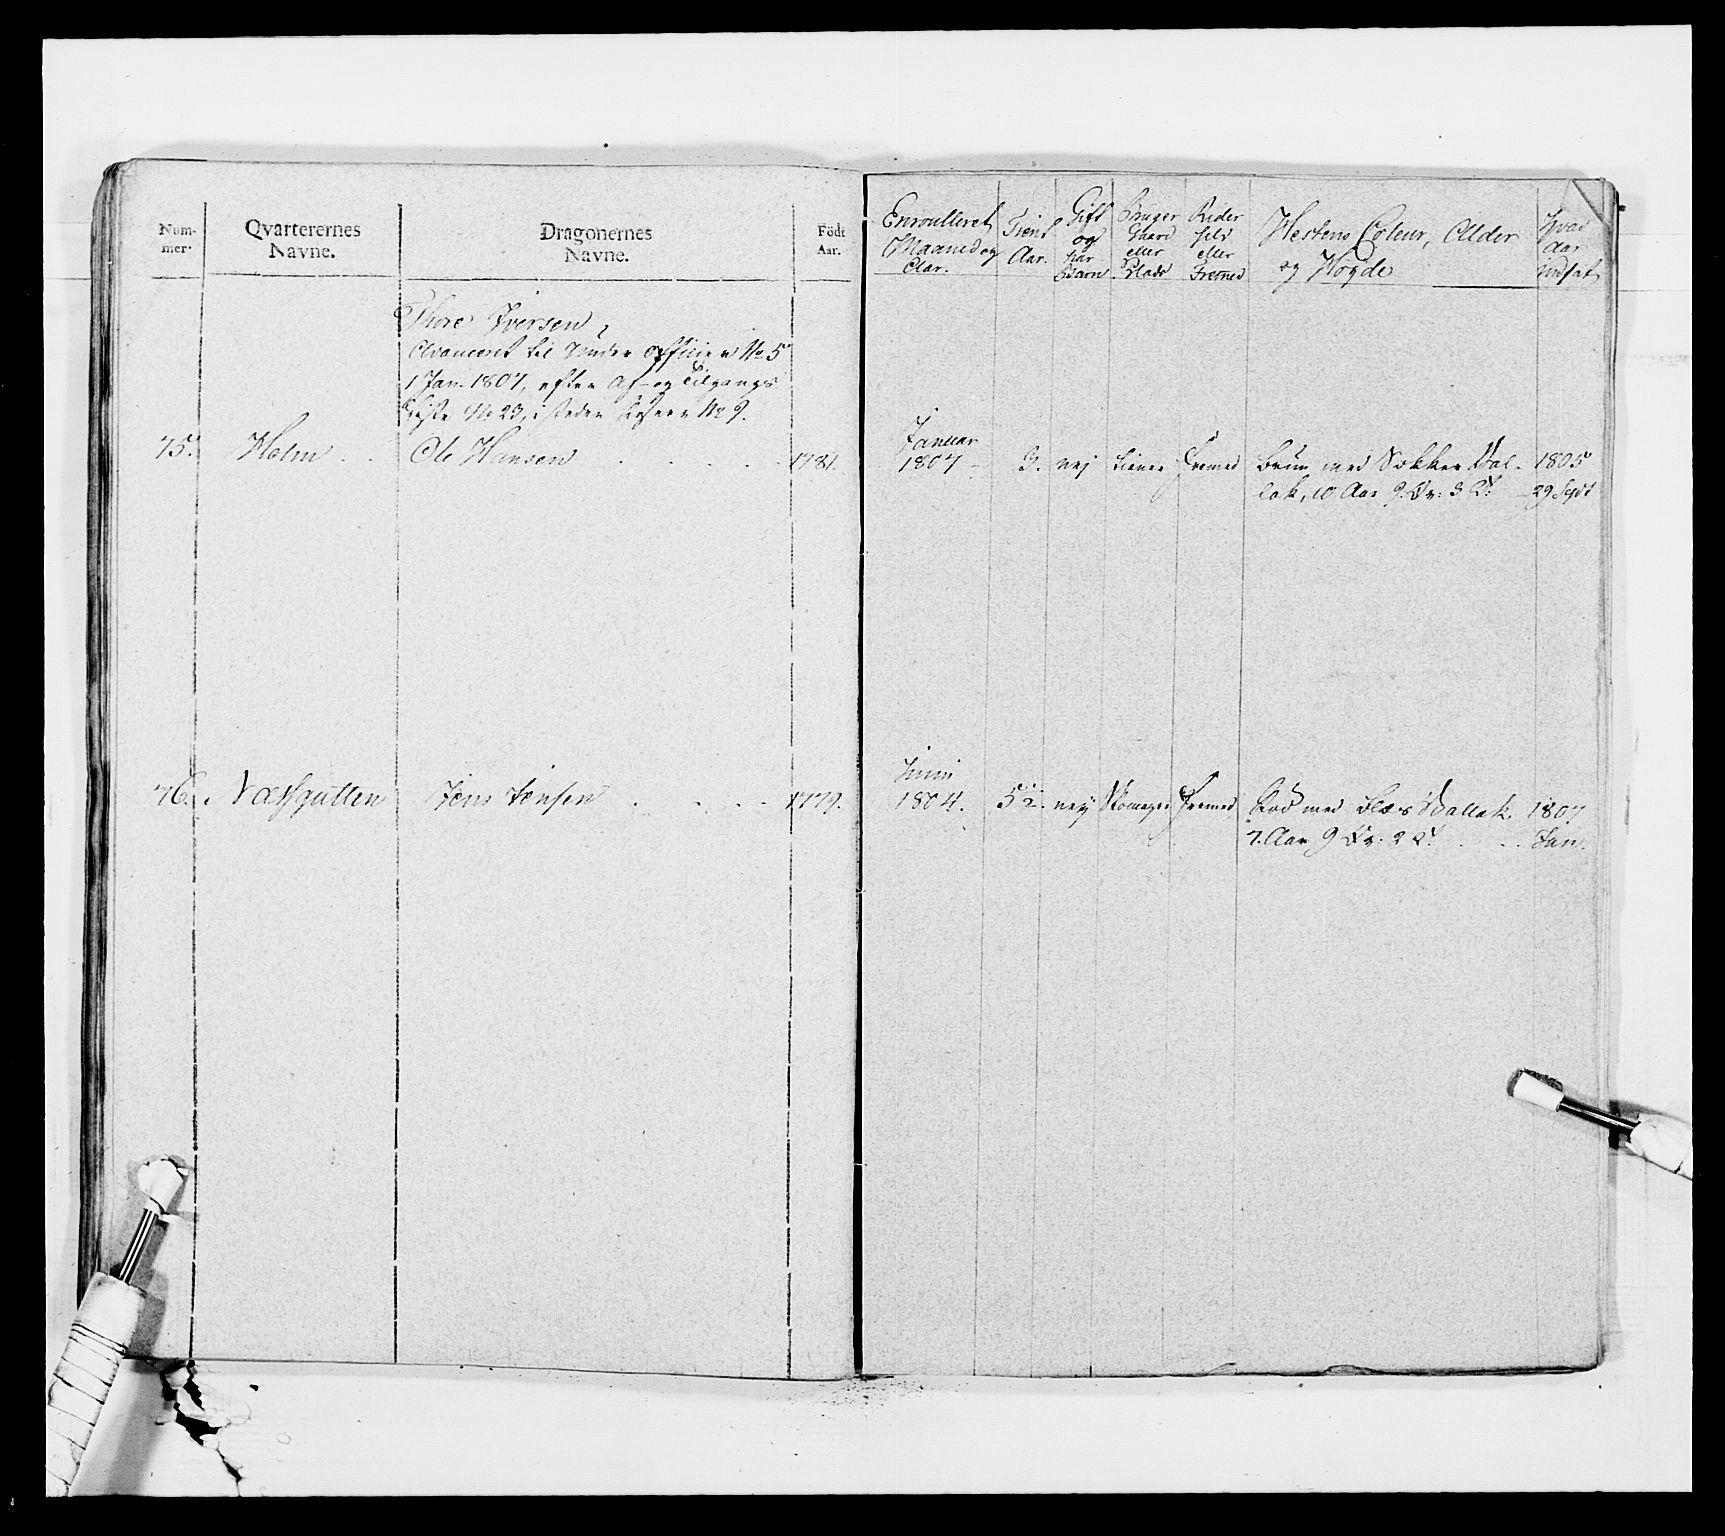 Num-
mer.
Qvarterernes
Navne.
Dragonernes
Navne.
Födt
Aar.
Enroulleret
Maaned og
Aar.
Tient
Aar.
Gift
og
har
Barn
Bruger
Gaard
eller
Plads
Rider
selv
eller
Fremed
Hestens Coleur, Alder
og Høyde
Hvad
Aar
udsat
Thore Iversen,
Avanceret til Under Officier No 5
1 Jan. 1807, efter Af- og Tilgangs
Liste No 23, i steden No 9.
75. Holm Ole Hansen 1781.
Januar
1807 3. nej tiener Fremed Bruun med Sokker Val- 1805
lak, 10 Aar 9. Qv: 3 T: 29 Sept
76. Næssgutten Jens Jensen 1779.
Junii
1804. 5 nej Fremed Rød med Blæs Vallak. 1807
7. Aar 9 Qv: 2 T. Jan.